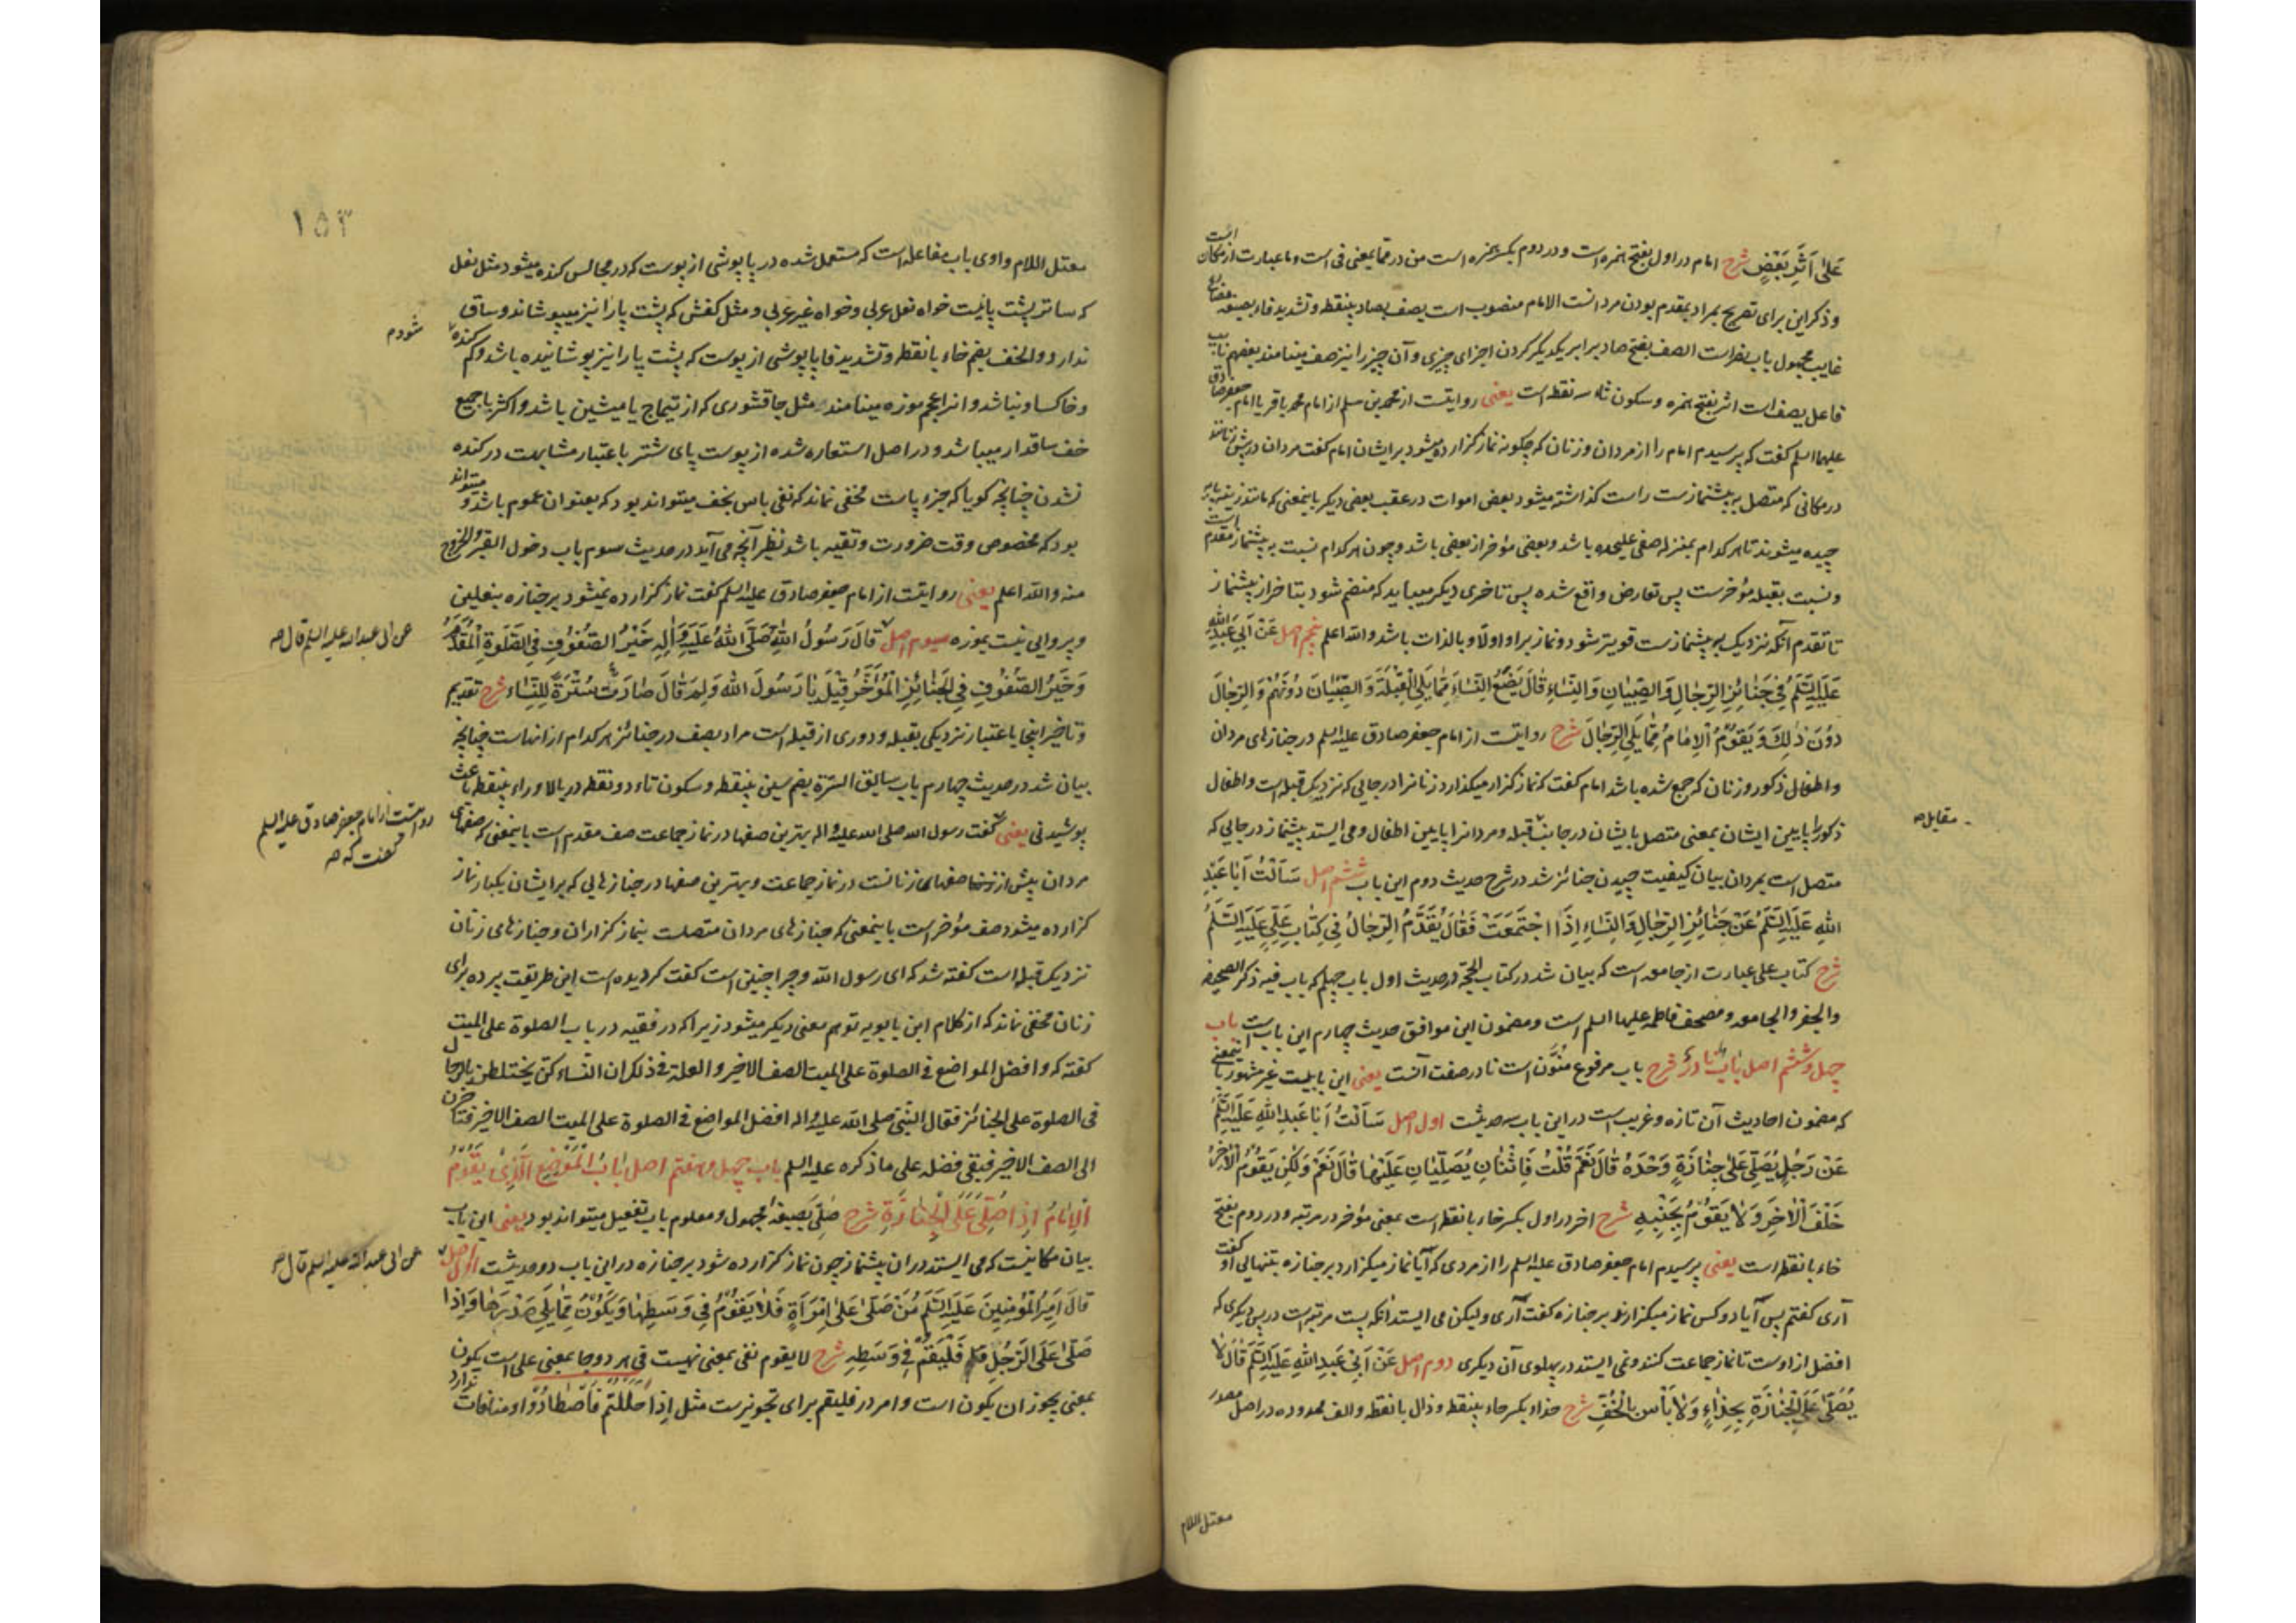 عَلىٰ اَثَرِ بَعْضٍ شرح امام در اول بفتح همزه است و در دوم بکسر همزه است من در مما بمعنی فی است و ما عبارت از مکان است
و ذکر این برای تصریح بمراد بمقدم بودن مردانست الامام منصوب است یصف بصاد بینقطه و تشدید فاء بصیغه مضارع
غایب مجهول باب نصر است الصف بفتح صاد برابر یکدیگر کردن اجزای چیزی و آن چیز را نیز صف مینامند بعضهم نایب
فاعل یصف است اثر بفتح همزه و سکون ثاء سه نقطه است یعنی روایتست از محمد بن مسلم از امام محمد باقر یا امام جعفر صادق
علیهما السلم گفت که پرسیدم امام را از مردان و زنان که چگونه نماز گزارده میشود بر ایشان امام گفت مردان در پیش زنانند
در مکانی که متصل به پیشنمازست راست گذاشته میشود بعض اموات در عقب بعضی دیگر باینمعنی که مانند زینه پایه
چیده میشوند تا هر کدام بمنزله صفی علیحده باشد و بعضی مؤخر از بعضی باشد و چون هر کدام نسبت به پیشنماز مقدم است
و نسبت بقبله مؤخرست پس تعارض واقع شده پس تاخری دیگر میباید که منضم شود بتاخر از پیشنماز
تا تقدم آنکه نزدیک به پیشنمازست قویتر شود و نماز بر او اولا و بالذات باشد والله اعلم پنجم اصل عَنْ اَبِی عَبْدِ اللّٰهِ
عَلَیْهِ السَّلَمُ فِی جَنٰائِزِ الرِّجٰالِ وَ الصِّبْیٰانِ وَ النِّسٰاءِ قٰالَ یَضَعُ النِّسٰاءَ مِمّٰا یَلِی الْقِبْلَةَ وَ الصِّبْیٰانَ دُونَهُمْ وَ الرِّجٰالَ
دُوْنَ ذٰلِكَ وَ یَقُوْمُ الْاِمٰامُ مِمّٰا یَلِی الرِّجٰالَ شرح روایتست از امام جعفر صادق علیه السلم در جنازهای مردان
و اطفال ذکور و زنان که جمع شده باشد امام گفت که نماز گزار میگذارد زنانرا در جایی که نزدیک قبله است و اطفال
ذکور را پایین ایشان بمعنی متصل بایشان در جانب قبله و مردانرا پایین اطفال و می ایستد پیشنماز در جایی که
متصل است بمردان بیان کیفیت چیدن جنائز شد در شرح حدیث دوم این باب ششم اصل سَأَلْتُ اَبٰا عَبْدِ
اللهِ عَلَیْهِ السَّلَمُ عَنْ جَنٰائِزِ الرِّجٰالِ وَ النِّسٰاءِ اِذَا اجْتَمَعَتْ فَقٰالَ یُقَدَّمُ الرِّجٰالُ فِی کِتٰابِ عَلِیٍّ عَلَیْهِ السَّلَمُ
شرح کتاب علی عبارت از جامعه است که بیان شد در کتاب الحجة در حدیث اول باب چهلم که باب فیه ذکر الصحیفه
والجفر والجامعه و مصحف فاطمه علیها السلم است و مضمون این موافق حدیث چهارم این باب است باب
چهل و ششم اصل بٰابٌ نٰادِرٌ شرح باب مرفوع منَوَّن است نادر صفت آنست یعنی این بابیست غیر مشهور باینمعنی
که مضمون احادیث آن تازه و غریب است در این باب سه حدیثست اول اصل سَاَلْتُ اَبٰا عَبْدِ اللهِ عَلَیْهِ السَّلَمُ
عَنْ رَجُلٍ یُصَلِّی عَلٰی جِنٰازَةٍ وَحْدَهُ قٰالَ نَعَمْ قُلْتُ فَاثْنٰانِ یُصَلِّیٰانِ عَلَیْهٰا قٰالَ نَعَمْ وَلٰکِنْ یَقُوْمُ الْاٰخَرُ
خَلْفَ الْاٰخِرِ وَ لٰا یَقُوْمُ بِجَنْبِهِ شرح اخر در اول بکسر خاء بانقطه است بمعنی مؤخر در مرتبه و در دوم بفتح
خاء بانقطه است یعنی پرسیدم امام جعفر صادق علیه السلم را از مردی که آیا نماز میگزارد بر جنازه بتنهایی او گفت
آری گفتم پس آیا دو کس نماز میگزارند بر جنازه گفت آری ولیکن می ایستد آنکه پست مرتبه است در پس دیگری که
افضل از اوست تا نماز جماعت کنند و نمی ایستد در پهلوی آن دیگری دوم اصل عَنْ اَبِی عَبْدِ اللهِ عَلَیْهِ السَّلَمُ قٰالَ لٰا
یُصَلّٰی عَلَی الْجَنٰازَةِ بِحِذٰاءٍ وَ لٰا بَأْسَ بِالْخُفِّ شرح حذاء بکسر حاء بینقطه و ذال بانقطه و الف ممدوده در اصل مصدر
معتل اللام
مقابله
۱۵۳
معتل اللام واوی باب مفاعله است که مستعمل شده در پاپوشی از پوست که در مجالس کنده میشود مثل نعل
که ساتر پشت پا نیست خواه نعل عربی و خواه غیر عربی و مثل کفش که پشت پا را نیز میپوشاند و ساق
ندارد و الخف بضم خاء بانقطه و تشدید فا پاپوشی از پوست که پشت پا را نیز پوشانیده باشد و کم کنده
شود م
و خاکسا و نباشد و انرا عجم موزه مینامند مثل چاقشوری که از تیماج یا میشین باشد و اکثر یا جمیع
خف ساقدار میباشد و در اصل استعاره شده از پوست پای شتر باعتبار مشابهت در کنده
نشدن چنانچه گویا که جزء پاست مخفی نماند که نفی باس بخف میتواند بود که بعنوان عموم باشد و میتواند
بود که مخصوص وقت ضرورت و تقیه باشد نظیر آنچه می آید در حدیث سوم باب دخول القبر والخروج
منه والله اعلم یعنی روایتست از امام جعفر صادق علیه السلم گفت نماز گزارده نمیشود بر جنازه بنعلین
و پروایی نیست بموزه سیوم اصل قٰالَ رَسُوْلُ اللهِ صَلَّی اللهُ عَلَیْهِ وَ اٰلِهِ خَیْرُ الصُّفُوْفِ فِی الصَّلٰوةِ الْمُقَدَّمُ
عن ابی عبدالله علیه السلم قال صه
وَ خَیْرُ الصُّفُوْفِ فِی الْجَنٰائِزِ الْمُؤَخَّرُ قِیْلَ یٰا رَسُولَ اللهِ وَلِمَ قٰالَ صٰارَتْ سُتْرَةً لِلنِّسٰاءِ شرح تقدیم
و تاخیر اینجا باعتبار نزدیکی بقبله و دوری از قبله است مراد بصف در جنائز هر کدام از انهاست چنانچه
بیان شد در حدیث چهارم باب سابق السترة بضم سین بینقطه و سکون تاء دونقطه در بالا و راء بینقطه باعث
پوشیدنی یعنی گفت رسول الله صلی الله علیه و اله بهترین صفها در نماز جماعت صف مقدم است باینمعنی که صفهای
روایتست از امام جعفر صادق علیه السلم
گفت که صه
مردان پیش از صفهای زنانست در نماز جماعت و بهترین صفها در جنازهایی که بر ایشان یکبار نماز
گزارده میشود صف مؤخر است باینمعنی که جنازهای مردان متصلست بنماز گزاران و جنازهای زنان
نزدیک قبله است گفته شد که ای رسول الله و چرا چنین است گفت گردیده است این طریقت پرده برای
زنان مخفی نماند که از کلام ابن بابویه توهم معنی دیگر میشود زیرا که در فقیه در باب الصلوة علی المیت
گفته که و افضل المواضع فی الصلوة علی المیت الصف الاخیر و العلة فی ذلک ان النساء کن یختلطن بالرجال
فی الصلوة علی الجنائز فقال النبی صلی الله علیه و اله افضل المواضع فی الصلوة علی المیت الصف الاخیر فتاخرن
الی الصف الاخیر فبقی فضله علی ما ذکره علیه السلم باب چهل و هفتم اصل بٰابُ الْمَوْضِعِ الَّذِیْ یَقُوْمُ
الْاِمٰامُ اِذٰا صُلِّیَ عَلَی الْجِنٰازَةِ شرح صلی بصیغه مجهول و معلوم باب تفعیل میتواند بود یعنی این باب
بیان مکانیست که می ایستد در ان پیشنماز چون نماز گزارده شود بر جنازه در این باب دو حدیثست اول اصل
عن ابی عبدالله علیه السلم قال صه
قٰالَ اَمِیْرُ الْمُؤْمِنِیْنَ عَلَیْهِ السَّلَمُ مَنْ صَلّٰی عَلَی امْرَأَةٍ فَلٰا یَقُوْمُ فِی وَسَطِهٰا وَ یَکُوْنُ مِمّٰا یَلِی صَدْرَهٰا وَ اِذٰا
صَلّٰی عَلَی الرَّجُلِ فَلْیَقُمْ فِی وَسَطِهِ شرح لا یقوم نفی بمعنی نهیست فی هر دو جا بمعنی علی است یکون
بمعنی یجوز ان یکون است و امر در فلیقم برای تجویزست مثل اِذٰا حَلَلْتُمْ فَاصْطٰادُوْا و منافات ندارد